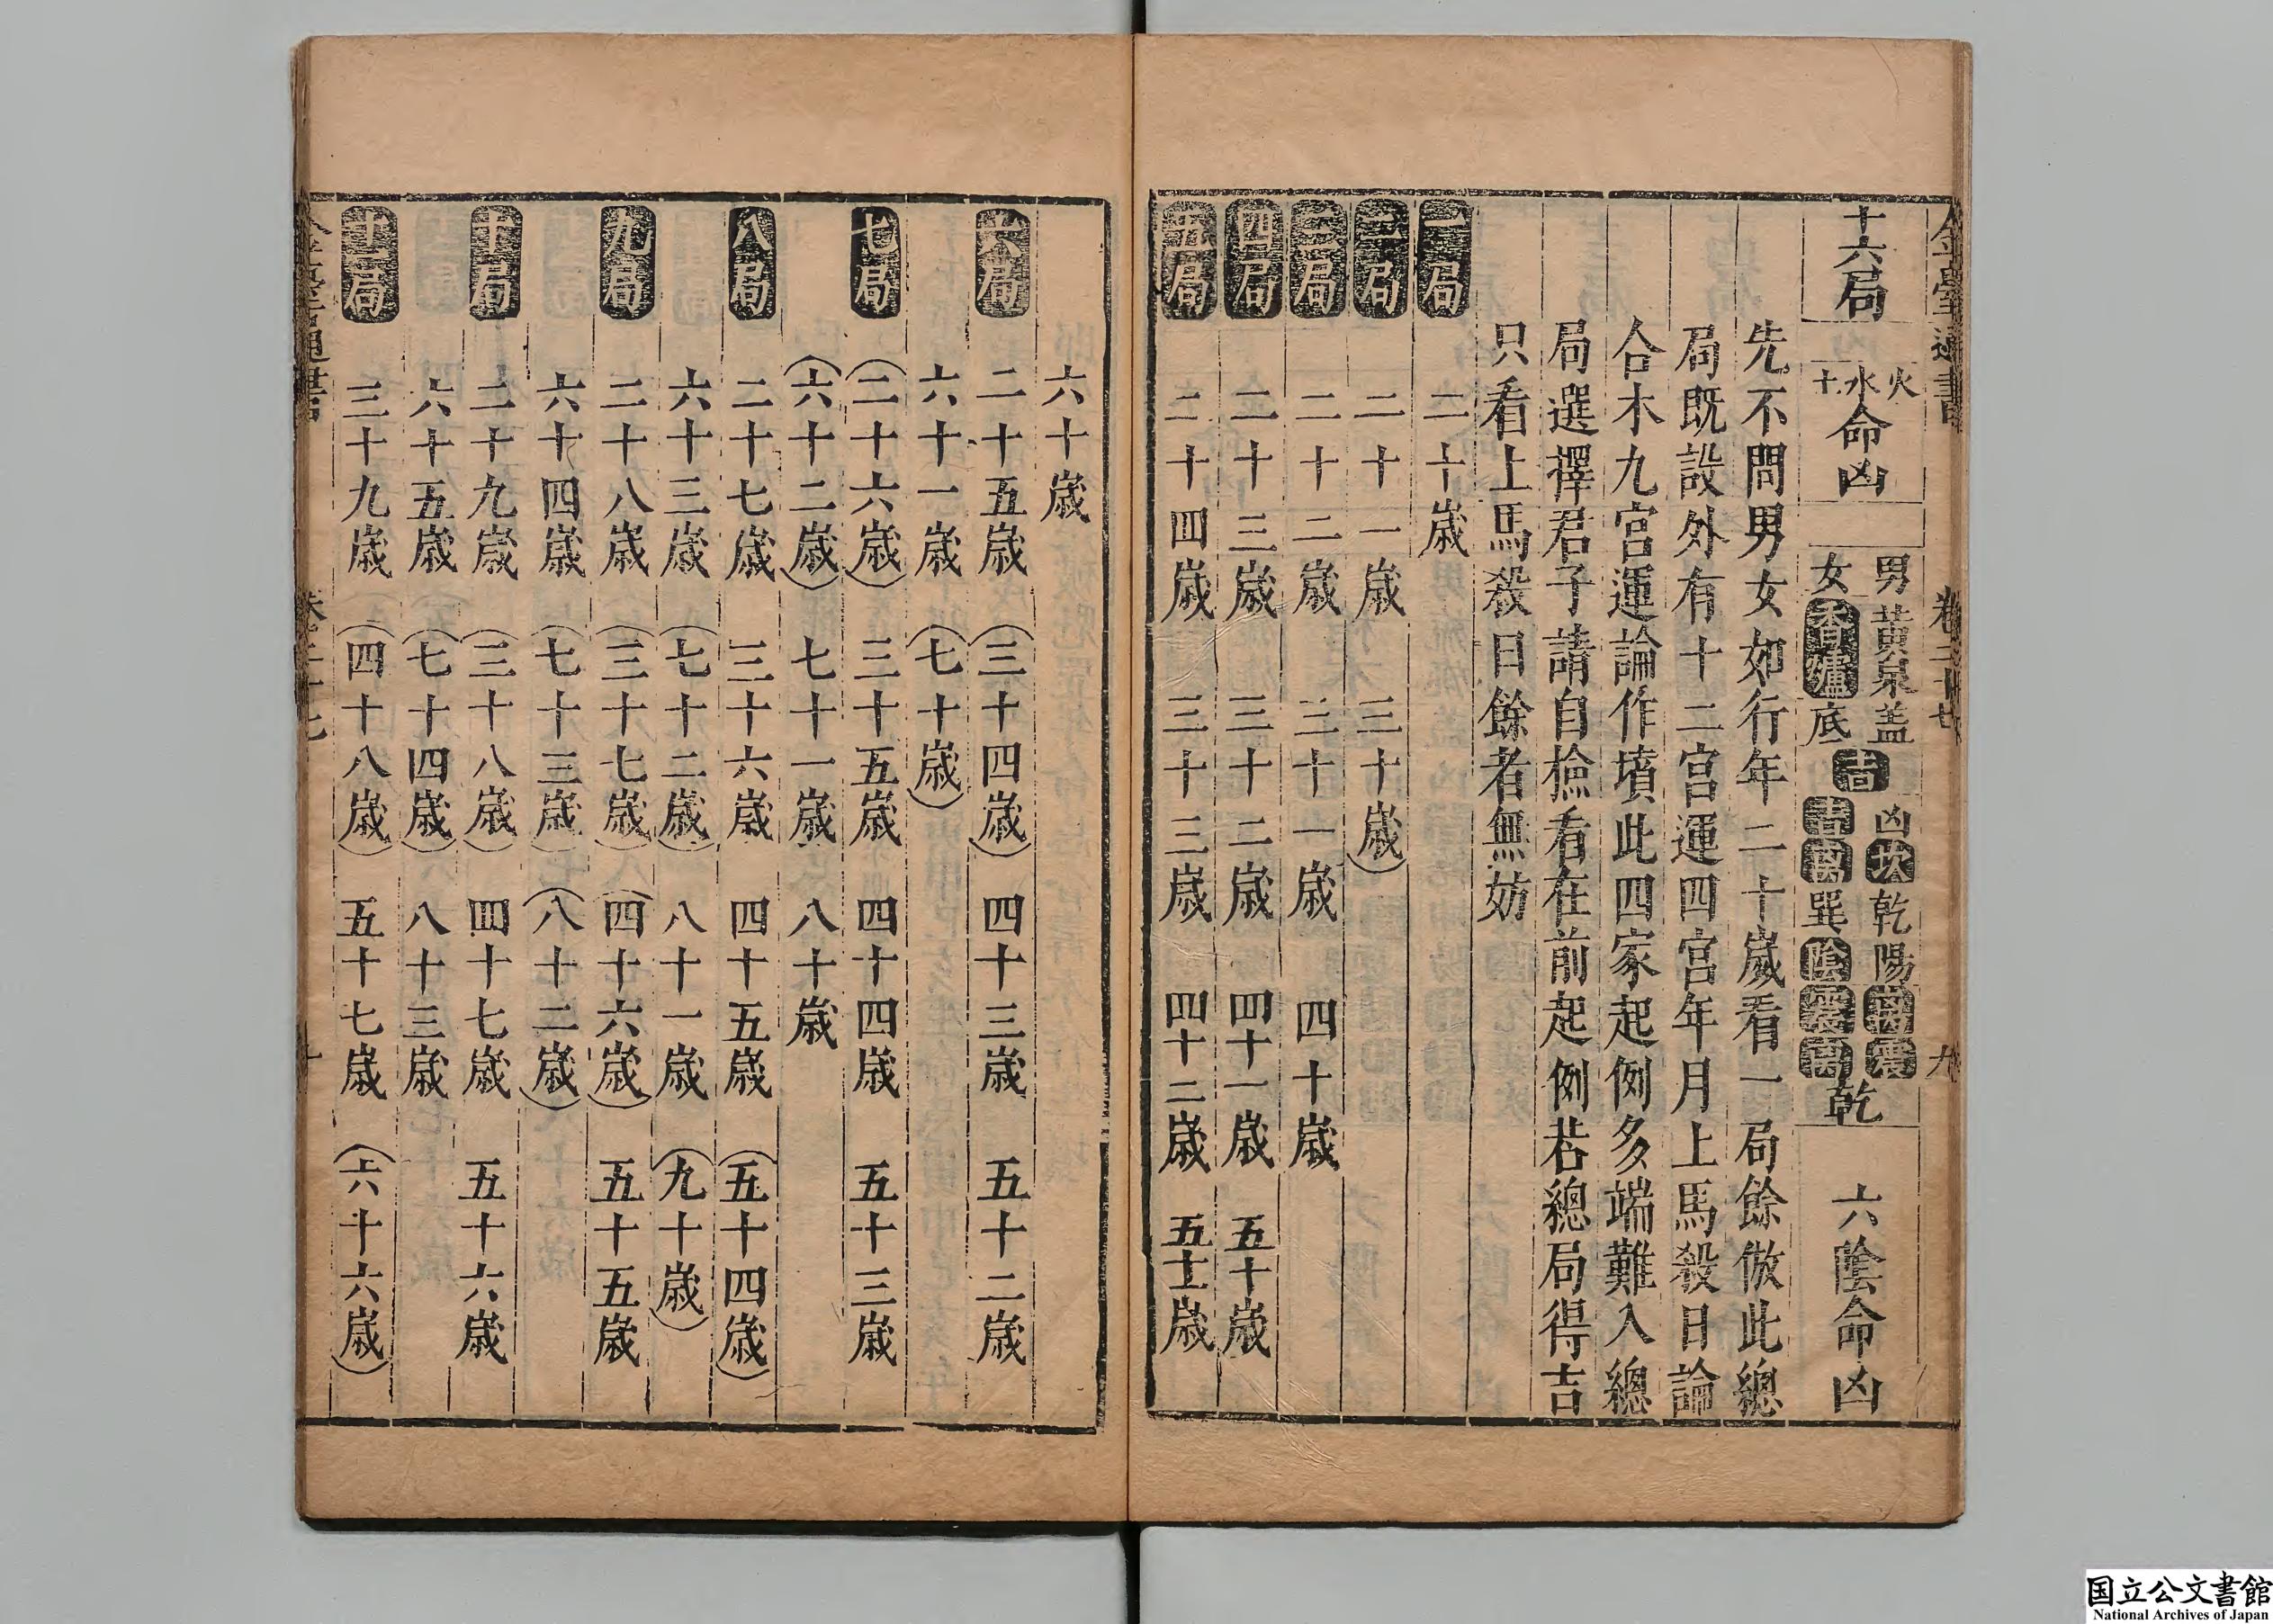 十六局
火水土命凶
男黃泉蓋
女香爐底
凶坎乾陽
巽陰
乾
六陰命凶
先不問男女如行年二十歲看一局餘倣此總
局既設外有十二宮運四宮年月上馬殺日論
合木九宮運論作墳此四家起例多端難入總
局選擇君子請自撿看在前起例若總局得吉
只看上馬殺日餘者無妨
一局 二十歲
二局 二十一歲 三十歲
三局 二十二歲 三十一歲 四十歲
四局 二十三歲 三十二歲 四十一歲 五十歲
五局 二十四歲 三十三歲 四十二歲 五十一歲
六十歲
六局 二十五歲 三十四歲 四十三歲 五十二歲
六十一歲 七十歲
七局 二十六歲 三十五歲 四十四歲 五十三歲
六十二歲 七十一歲 八十歲
八局 二十七歲 三十六歲 四十五歲 五十四歲
六十三歲 七十二歲 八十一歲 九十歲
九局 二十八歲 三十七歲 四十六歲 五十五歲
六十四歲 七十三歲 八十二歲
十局 二十九歲 三十八歲 四十七歲 五十六歲
六十五歲 七十四歲 八十三歲
十一局 三十九歲 四十八歲 五十七歲 六十六歲
国立公文書館
National Archives of Japan